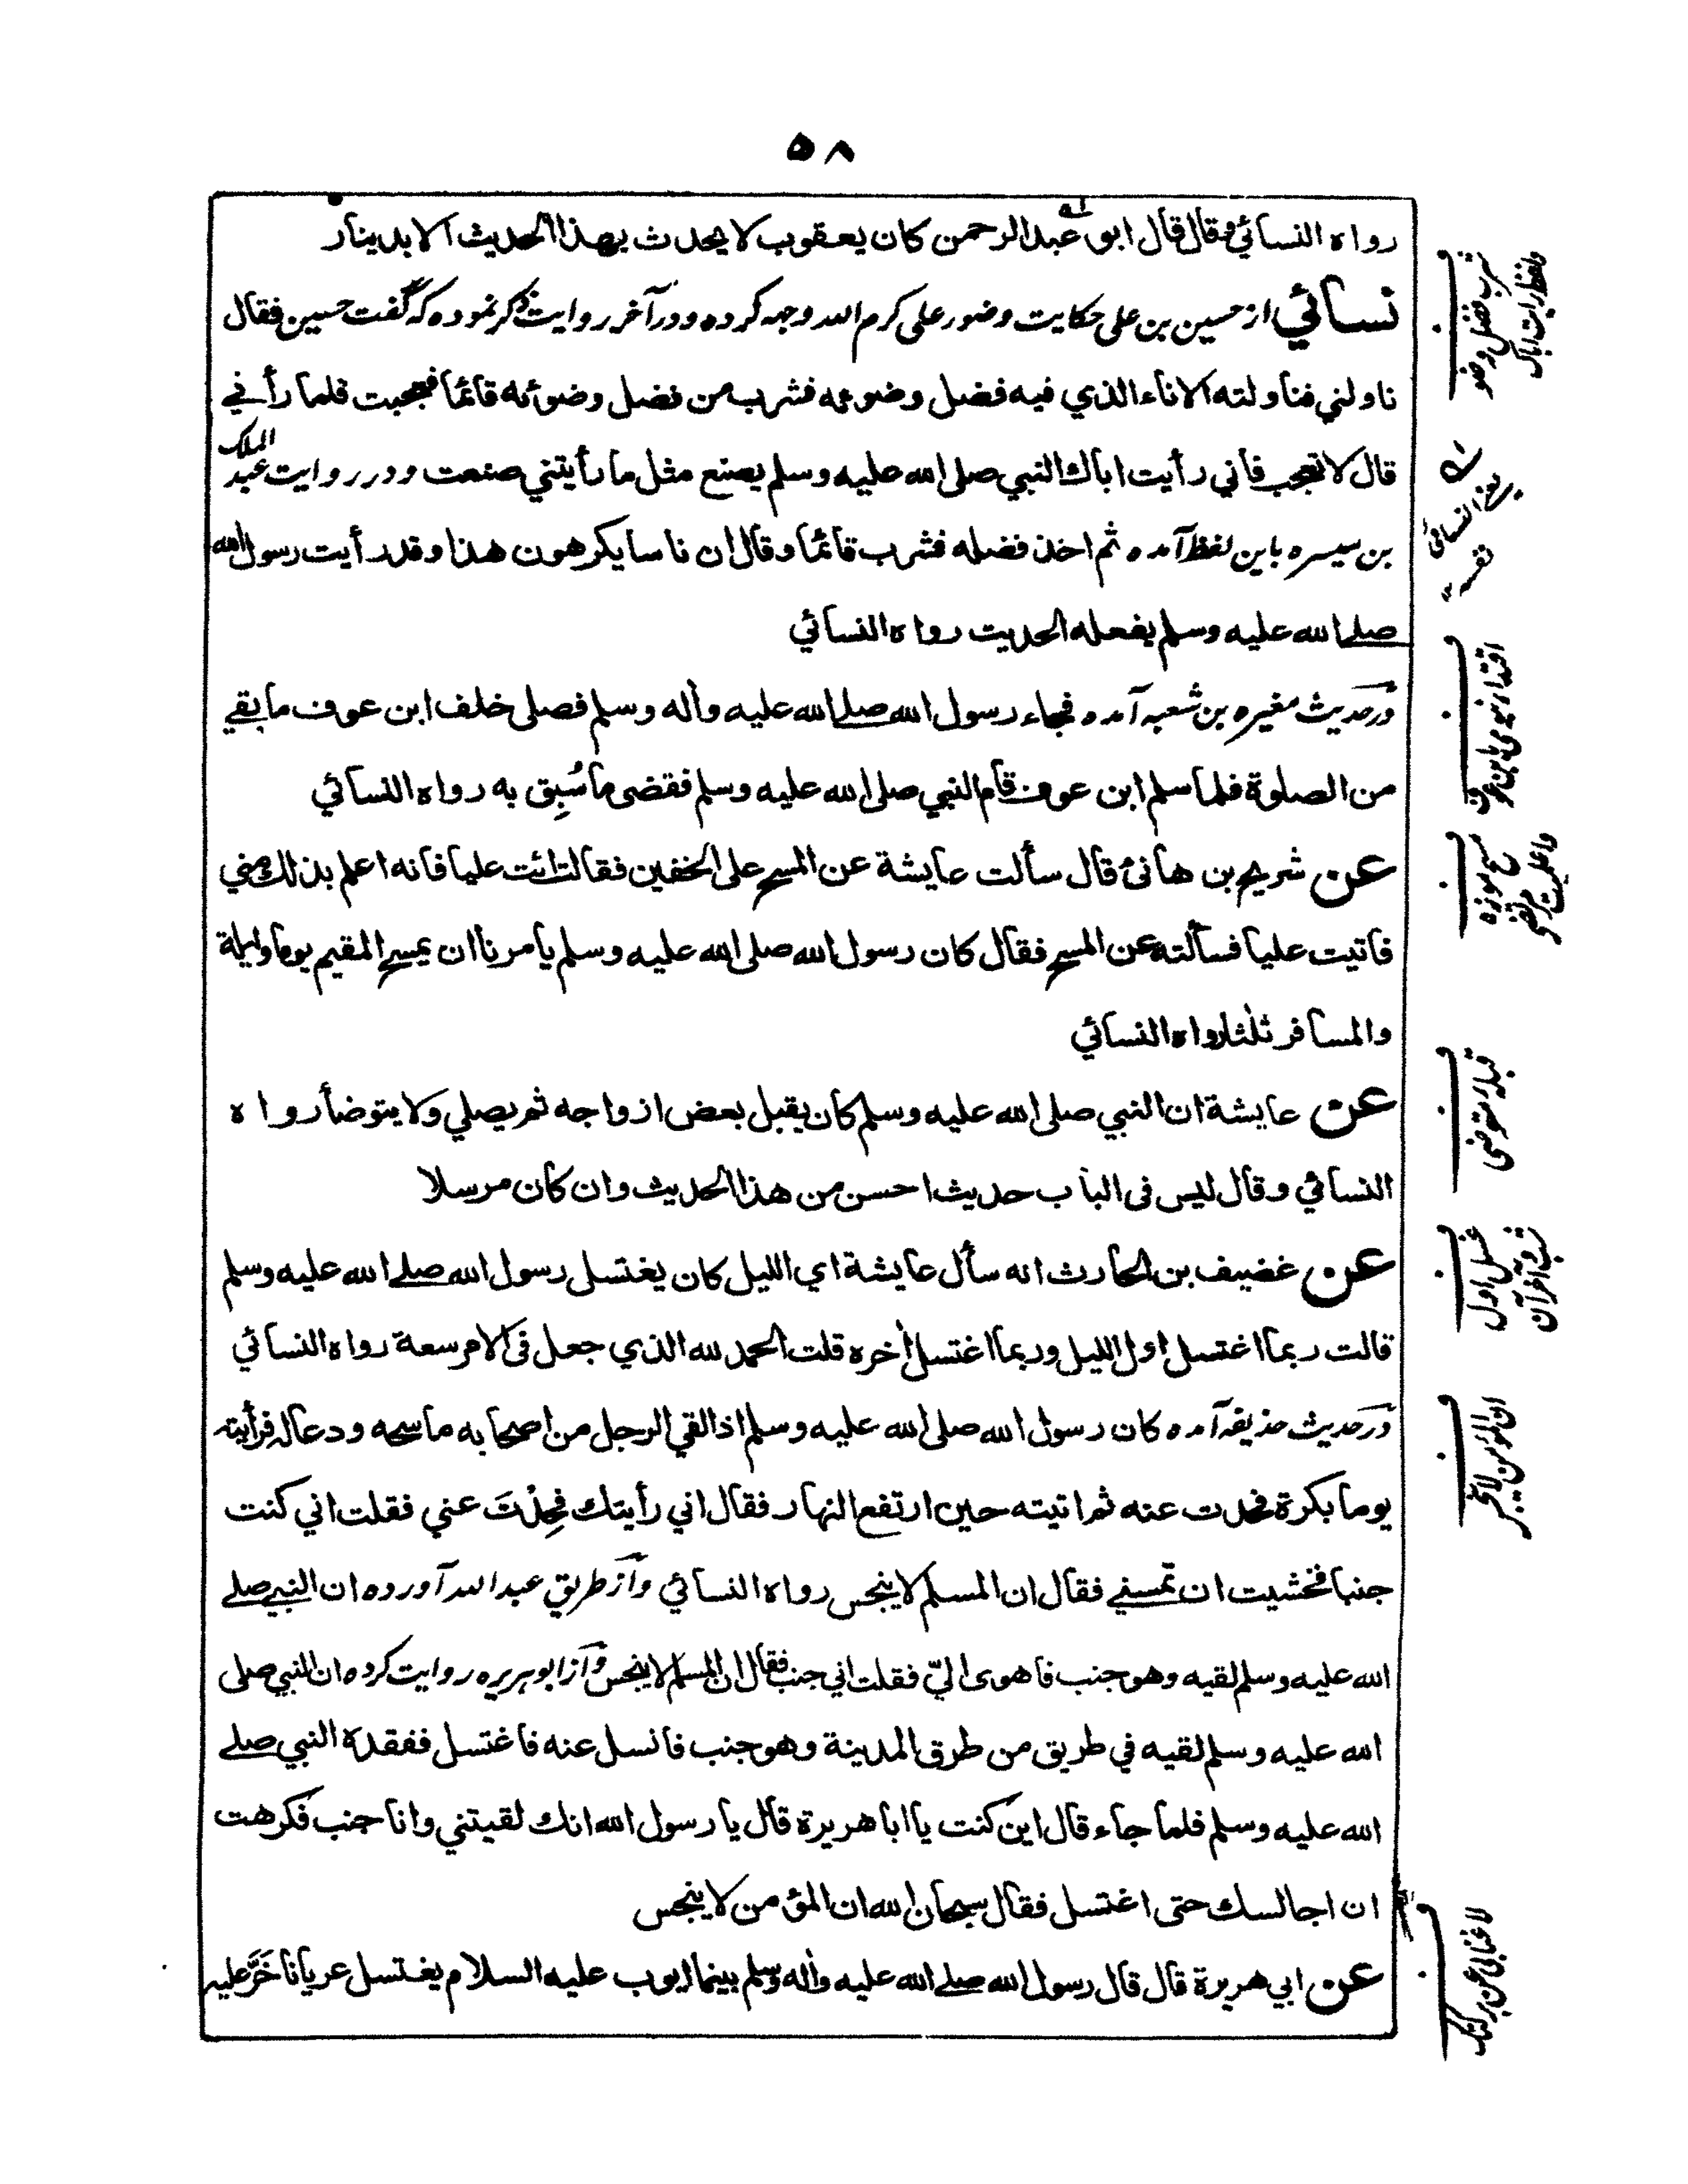 ٥٨
رواه النسائي وقال قال ابو عبد الرحمن كان يعقوب لا يحدث بهذا الحديث الا بدينار
نسائي از حسين بن علي حكايت وضور علي كرم الله وجهه كرده و در آخر روايت ذكر نموده كه گفت حسين فقال
ناولني فناولته الاناء الذي فيه فضل وضوئه فشرب من فضل وضوئه قائما فعجبت فلما رأني
قال لا تعجب فاني رأيت اباك النبي صلى الله عليه وسلم يصنع مثل ما رأيتني صنعت و در روايت عبد الملك
بن سيسره باين لفظ آمده ثم اخذ فضله فشرب قائما وقال ان ناسا يكرهون هذا وقد رأيت رسول الله
صلے الله عليه وسلم يفعله الحديث رواه النسائي
ودر حديث مغيره بن شعبه آمده فجاء رسول الله صلے الله عليه واله وسلم فصلى خلف ابن عوف ما بقے
من الصلوة فلما سلم ابن عوف قام النبي صلى الله عليه وسلم فقضى ما سُبِق به رواه النسائي
عن شريح بن هانئ قال سألت عايشة عن المسح على الخفين فقالت ائت عليا فانه اعلم بذلك مني
فاتيت عليا فسألته عن المسح فقال كان رسول الله صلى الله عليه وسلم يامرنا ان يمسح المقيم يوما وليلة
والمسافر ثلثا رواه النسائي
عن عايشة ان النبي صلى الله عليه وسلم كان يقبل بعض ازواجه ثم يصلي ولا يتوضأ رواه
النسائي وقال ليس فى الباب حديث احسن من هذا الحديث وان كان مرسلا
عن غضيف بن الحارث انه سأل عايشة اي الليل كان يغتسل رسول الله صلے الله عليه وسلم
قالت ربما اغتسل اول الليل وربما اغتسل أخره قلت الحمد لله الذي جعل فى الامر سعة رواه النسائي
ودر حديث حذيفه آمده كان رسول الله صلى الله عليه وسلم اذا لقي الرجل من اصحابه ماسحه ودعا له فرأيته
يوما بكرة فحدت عنه ثم اتيته حين ارتفع النهار فقال اني رأيتك فحِدْتَ عني فقلت اني كنت
جنبا فخشيت ان تمسنے فقال ان المسلم لا ينجس رواه النسائي وآز طريق عبد الله آورده ان النبي صلے
الله عليه وسلم لقيه وهو جنب فاهوى اليّ فقلت اني جنب فقال ان المسلم لا ينجس وآز ابو هريره روايت كرده ان النبي صلى
الله عليه وسلم لقيه في طريق من طرق المدينة وهو جنب فانسل عنه فاغتسل ففقده النبي صلے
الله عليه وسلم فلما جاء قال اين كنت يا ابا هريرة قال يا رسول الله انك لقيتني وانا جنب فكرهت
ان اجالسك حتى اغتسل فقال سبحان الله ان المؤمن لا ينجس
عن ابي هريرة قال قال رسول الله صلے الله عليه واله وسلم بينما ايوب عليه السلام يغتسل عريانا خَرَّ عليه
شرب فضل وضو
ولفظ رايت اباك
مسح موزه
قبله متوضى
غسل اول
شب و آخر آن
ان المؤمن لا ينجس
لا غنابي عن بركتك